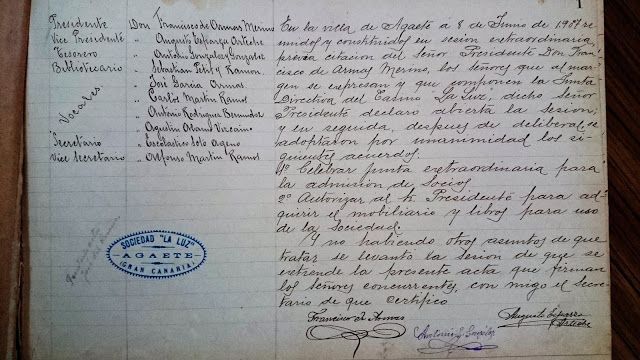 1
Presidente Don Francisco de Armas Merino
Vice Presidente " Augusto Esparza Artiche
Tesorero " Antonio Gonzalez Gonzalez
Bibliotecario " Sebastian Petit y Ramon
Vocales.
" José Garcia Armas
" Carlos Martin Ramos
" Antonio Rodriguez Bermudez
" Agustin Alamo Vizcaino
Secretario " Escolastico Soto Ageno
Vice Secretario " Alfonso Martin Ramos
SOCIEDAD "LA LUZ"
AGAETE
(GRAN CANARIA)
En la villa de Agaete á 8 de Junio de 1907 re
unidos y constituidos en sesion extraordinaria
prévia citacion del Señor Presidente Don Fran
cisco de Armas Merino, los señores que al mar
gen se expresan y que componen la Junta
Directiva del Casino "La Luz", dicho Señor
Presidente declaró abierta la sesion,
y en seguida, despues de deliberar, se
adoptaron por unanimidad los si-
guientes acuerdos.
1º Celebrar junta extraordinaria para
la admision de Socios
2º Autorizar al Sr. Presidente para ad-
quirir el mobiliario y libros para uso
de la Sociedad.
Y no habiendo otros asuntos de que
tratar se levantó la sesion de que se
extiende la presente acta que firman
los señores concurrentes, con migo el Secre-
tario de que certifico
Francisco de Armas
Antonio G. Gonzalez
Augusto Esparza
Artiche